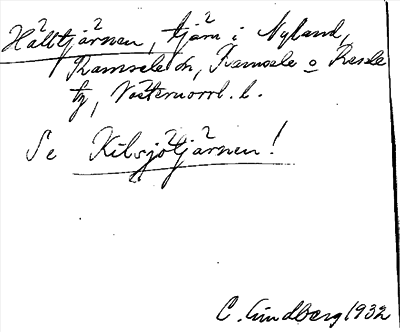 Hälltjärnen, tjärn i Nyland,
Ramsele sn, Ramsele o Resele
tg, Västernorrl. l.
Se Kilsjötjärnen!
C. Lindberg 1932